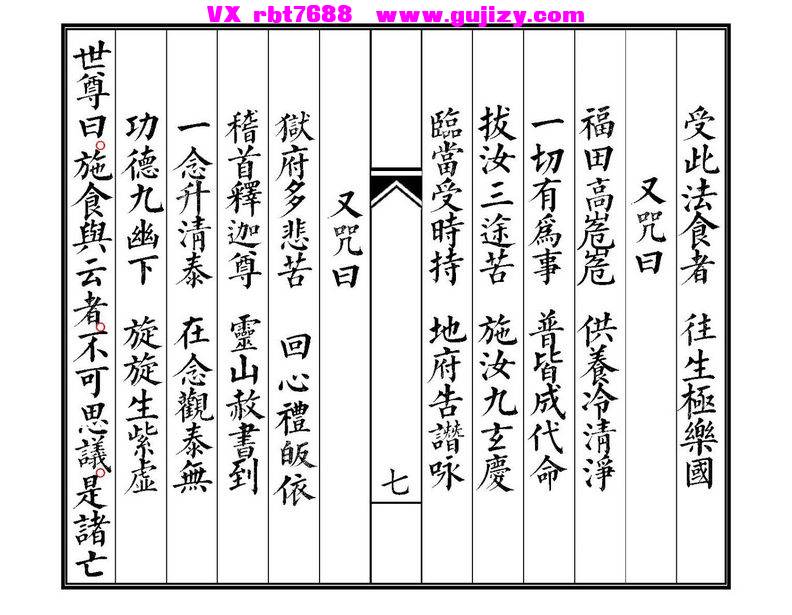 VX rbt7688 www.gujizy.com
受此法食者 往生極樂國
又咒曰
福田高嵬嵬 供養冷清淨
一切有為事 普皆成代命
拔汝三途苦 施汝九玄慶
臨當受時持 地府告譖咏
七
又咒曰
獄府多悲苦 回心禮皈依
稽首釋迦尊 靈山赦書到
一念升清泰 在念觀泰無
功德九幽下 旋旋生紫虛
世尊曰。施食與云者。不可思議。是諸亡